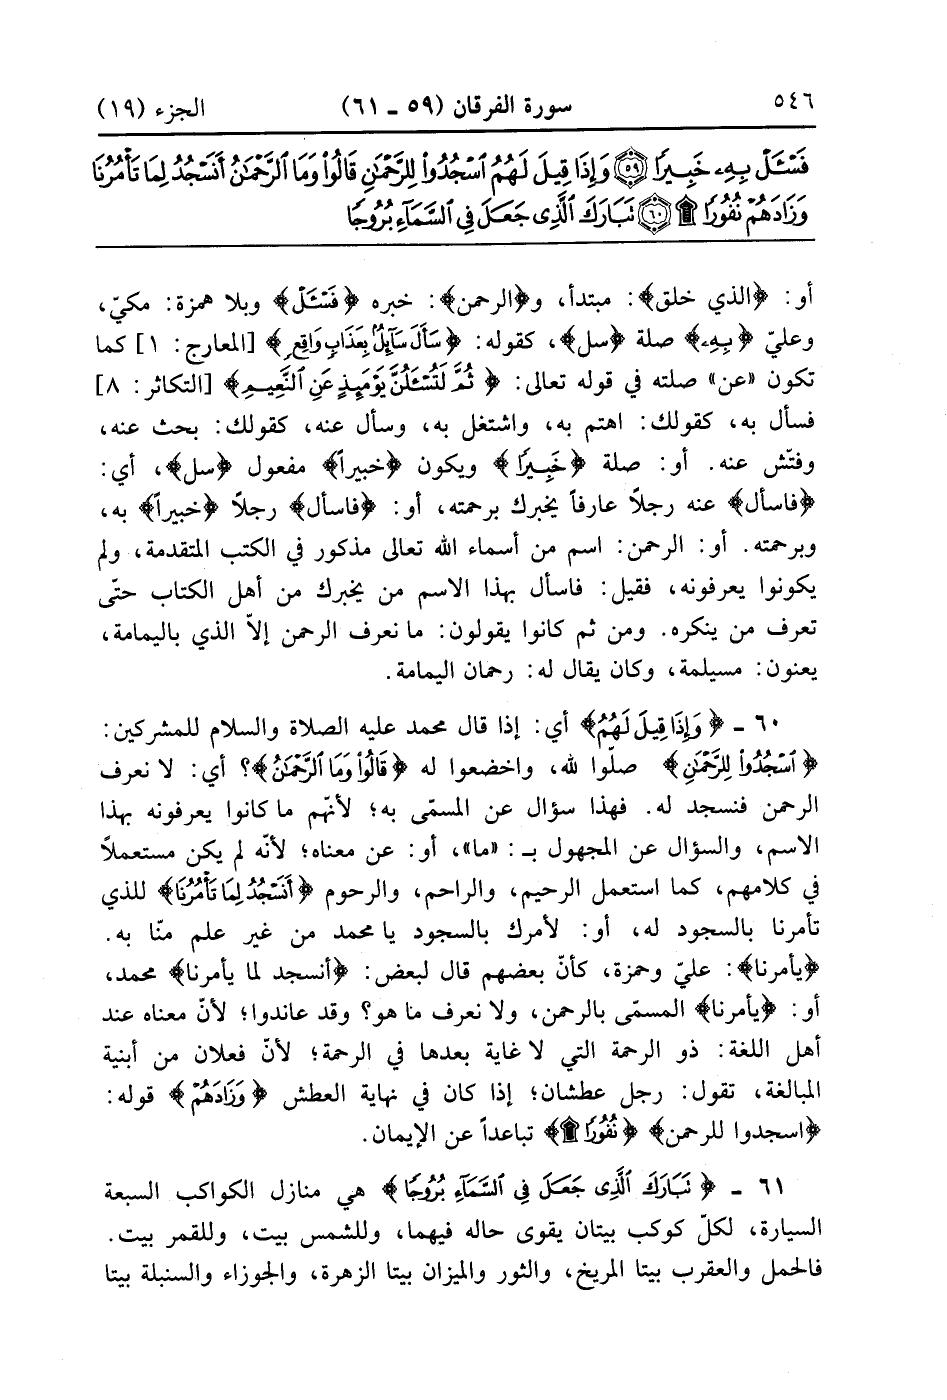 ٥٤٦ سورة الفرقان (٥٩ ـ ٦١) الجزء (١٩)
فَسْـَٔلْ بِهِۦ خَبِيرًا ﴿٥٩﴾ وَإِذَا قِيلَ لَهُمُ ٱسْجُدُوا۟ لِلرَّحْمَٰنِ قَالُوا۟ وَمَا ٱلرَّحْمَٰنُ أَنَسْجُدُ لِمَا تَأْمُرُنَا
وَزَادَهُمْ نُفُورًا ۩ ﴿٦٠﴾ تَبَارَكَ ٱلَّذِى جَعَلَ فِى ٱلسَّمَآءِ بُرُوجًا
أو: ﴿الذي خلق﴾: مبتدأ، و﴿الرحمن﴾: خبره ﴿فَسْـَٔلْ﴾ وبلا همزة: مكيّ،
وعليّ ﴿بِهِۦ﴾ صلة ﴿سل﴾، كقوله: ﴿سَأَلَ سَآئِلٌۢ بِعَذَابٍ وَاقِعٍ﴾ [المعارج: ١] كما
تكون «عن» صلته في قوله تعالى: ﴿ثُمَّ لَتُسْـَٔلُنَّ يَوْمَئِذٍ عَنِ ٱلنَّعِيمِ﴾ [التكاثر: ٨]
فسأل به، كقولك: اهتم به، واشتغل به، وسأل عنه، كقولك: بحث عنه،
وفتّش عنه. أو: صلة ﴿خَبِيرًا﴾ ويكون ﴿خبيراً﴾ مفعول ﴿سل﴾، أي:
﴿فاسأل﴾ عنه رجلاً عارفاً يخبرك برحمته، أو: ﴿فاسأل﴾ رجلاً ﴿خبيراً﴾ به،
وبرحمته. أو: الرحمن: اسم من أسماء الله تعالى مذكور في الكتب المتقدمة، ولم
يكونوا يعرفونه، فقيل: فاسأل بهذا الاسم من يخبرك من أهل الكتاب حتّى
تعرف من ينكره. ومن ثم كانوا يقولون: ما نعرف الرحمن إلاّ الذي باليمامة،
يعنون: مسيلمة، وكان يقال له: رحمان اليمامة.
٦٠ ـ ﴿وَإِذَا قِيلَ لَهُمُ﴾ أي: إذا قال محمد عليه الصلاة والسلام للمشركين:
﴿ٱسْجُدُوا۟ لِلرَّحْمَٰنِ﴾ صلّوا لله، واخضعوا له ﴿قَالُوا۟ وَمَا ٱلرَّحْمَٰنُ﴾؟ أي: لا نعرف
الرحمن فنسجد له. فهذا سؤال عن المسمّى به؛ لأنّهم ما كانوا يعرفونه بهذا
الاسم، والسؤال عن المجهول بـ: «ما»، أو: عن معناه؛ لأنّه لم يكن مستعملاً
في كلامهم، كما استعمل الرحيم، والراحم، والرحوم ﴿أَنَسْجُدُ لِمَا تَأْمُرُنَا﴾ للذي
تأمرنا بالسجود له، أو: لأمرك بالسجود يا محمد من غير علم منّا به.
﴿يأمرنا﴾: عليّ وحمزة، كأنّ بعضهم قال لبعض: ﴿أنسجد لما يأمرنا﴾ محمد،
أو: ﴿يأمرنا﴾ المسمّى بالرحمن، ولا نعرف ما هو؟ وقد عاندوا؛ لأنّ معناه عند
أهل اللغة: ذو الرحمة التي لا غاية بعدها في الرحمة؛ لأنّ فعلان من أبنية
المبالغة، تقول: رجل عطشان؛ إذا كان في نهاية العطش ﴿وَزَادَهُمْ﴾ قوله:
﴿اسجدوا للرحمن﴾ ﴿نُفُورًا ۩﴾ تباعداً عن الإيمان.
٦١ ـ ﴿تَبَارَكَ ٱلَّذِى جَعَلَ فِى ٱلسَّمَآءِ بُرُوجًا﴾ هي منازل الكواكب السبعة
السيارة، لكلّ كوكب بيتان يقوى حاله فيهما، وللشمس بيت، وللقمر بيت.
فالحمل والعقرب بيتا المريخ، والثور والميزان بيتا الزهرة، والجوزاء والسنبلة بيتا